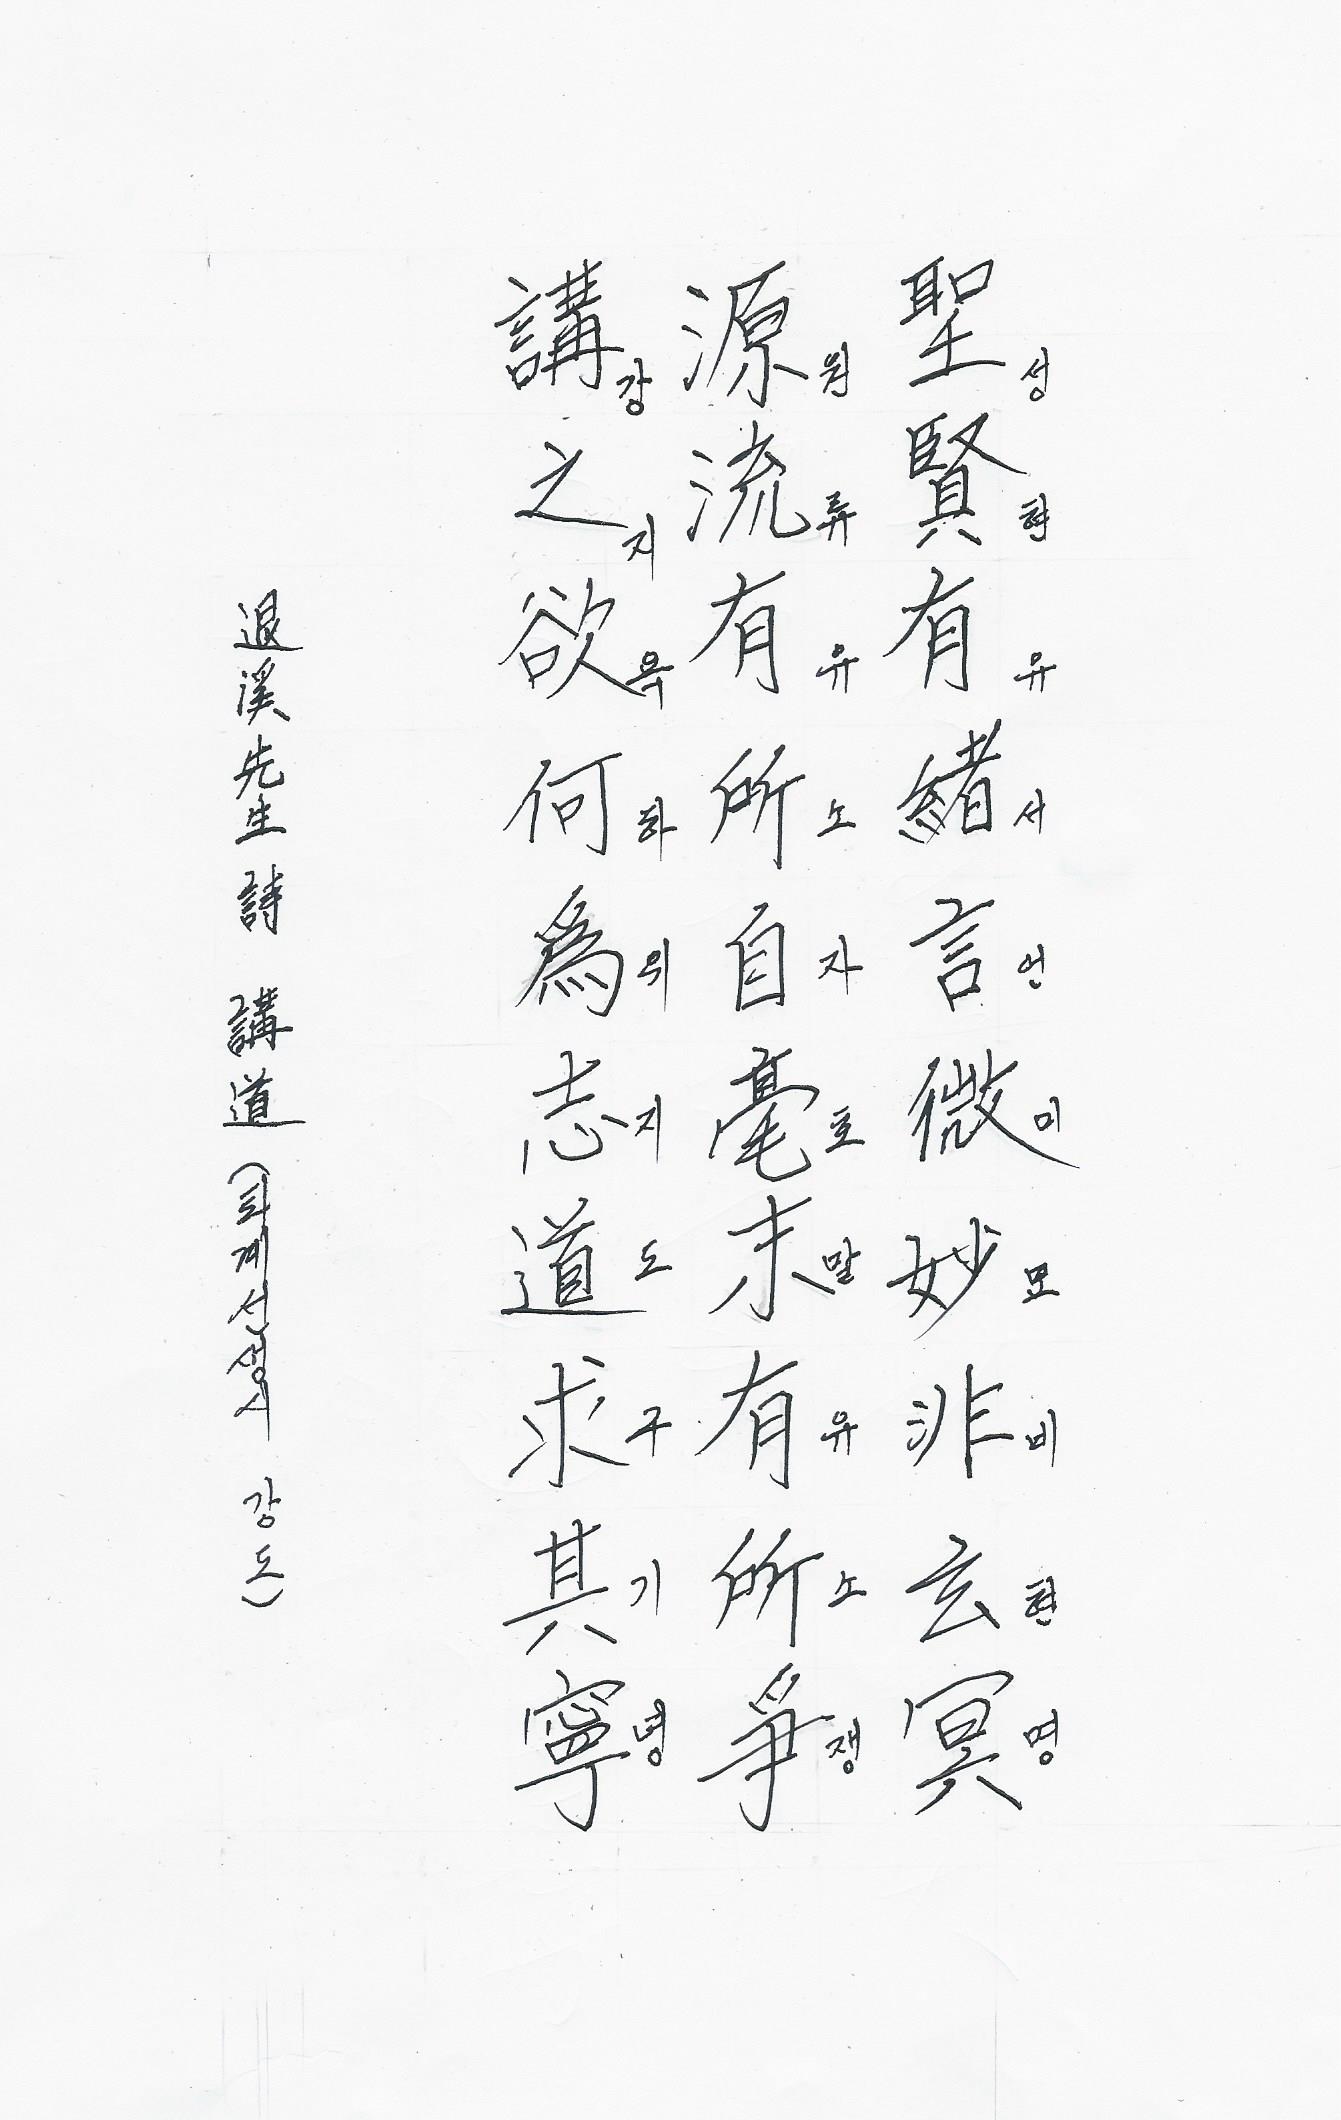 聖성賢현有유緖서言언微미妙묘非비玄현冥명
源원流류有유所소自자毫호末말有유所소爭쟁
講강之지欲욕何하爲위志지道도求구其기寧녕
退溪先生詩 講道 (퇴계선생시 강도)